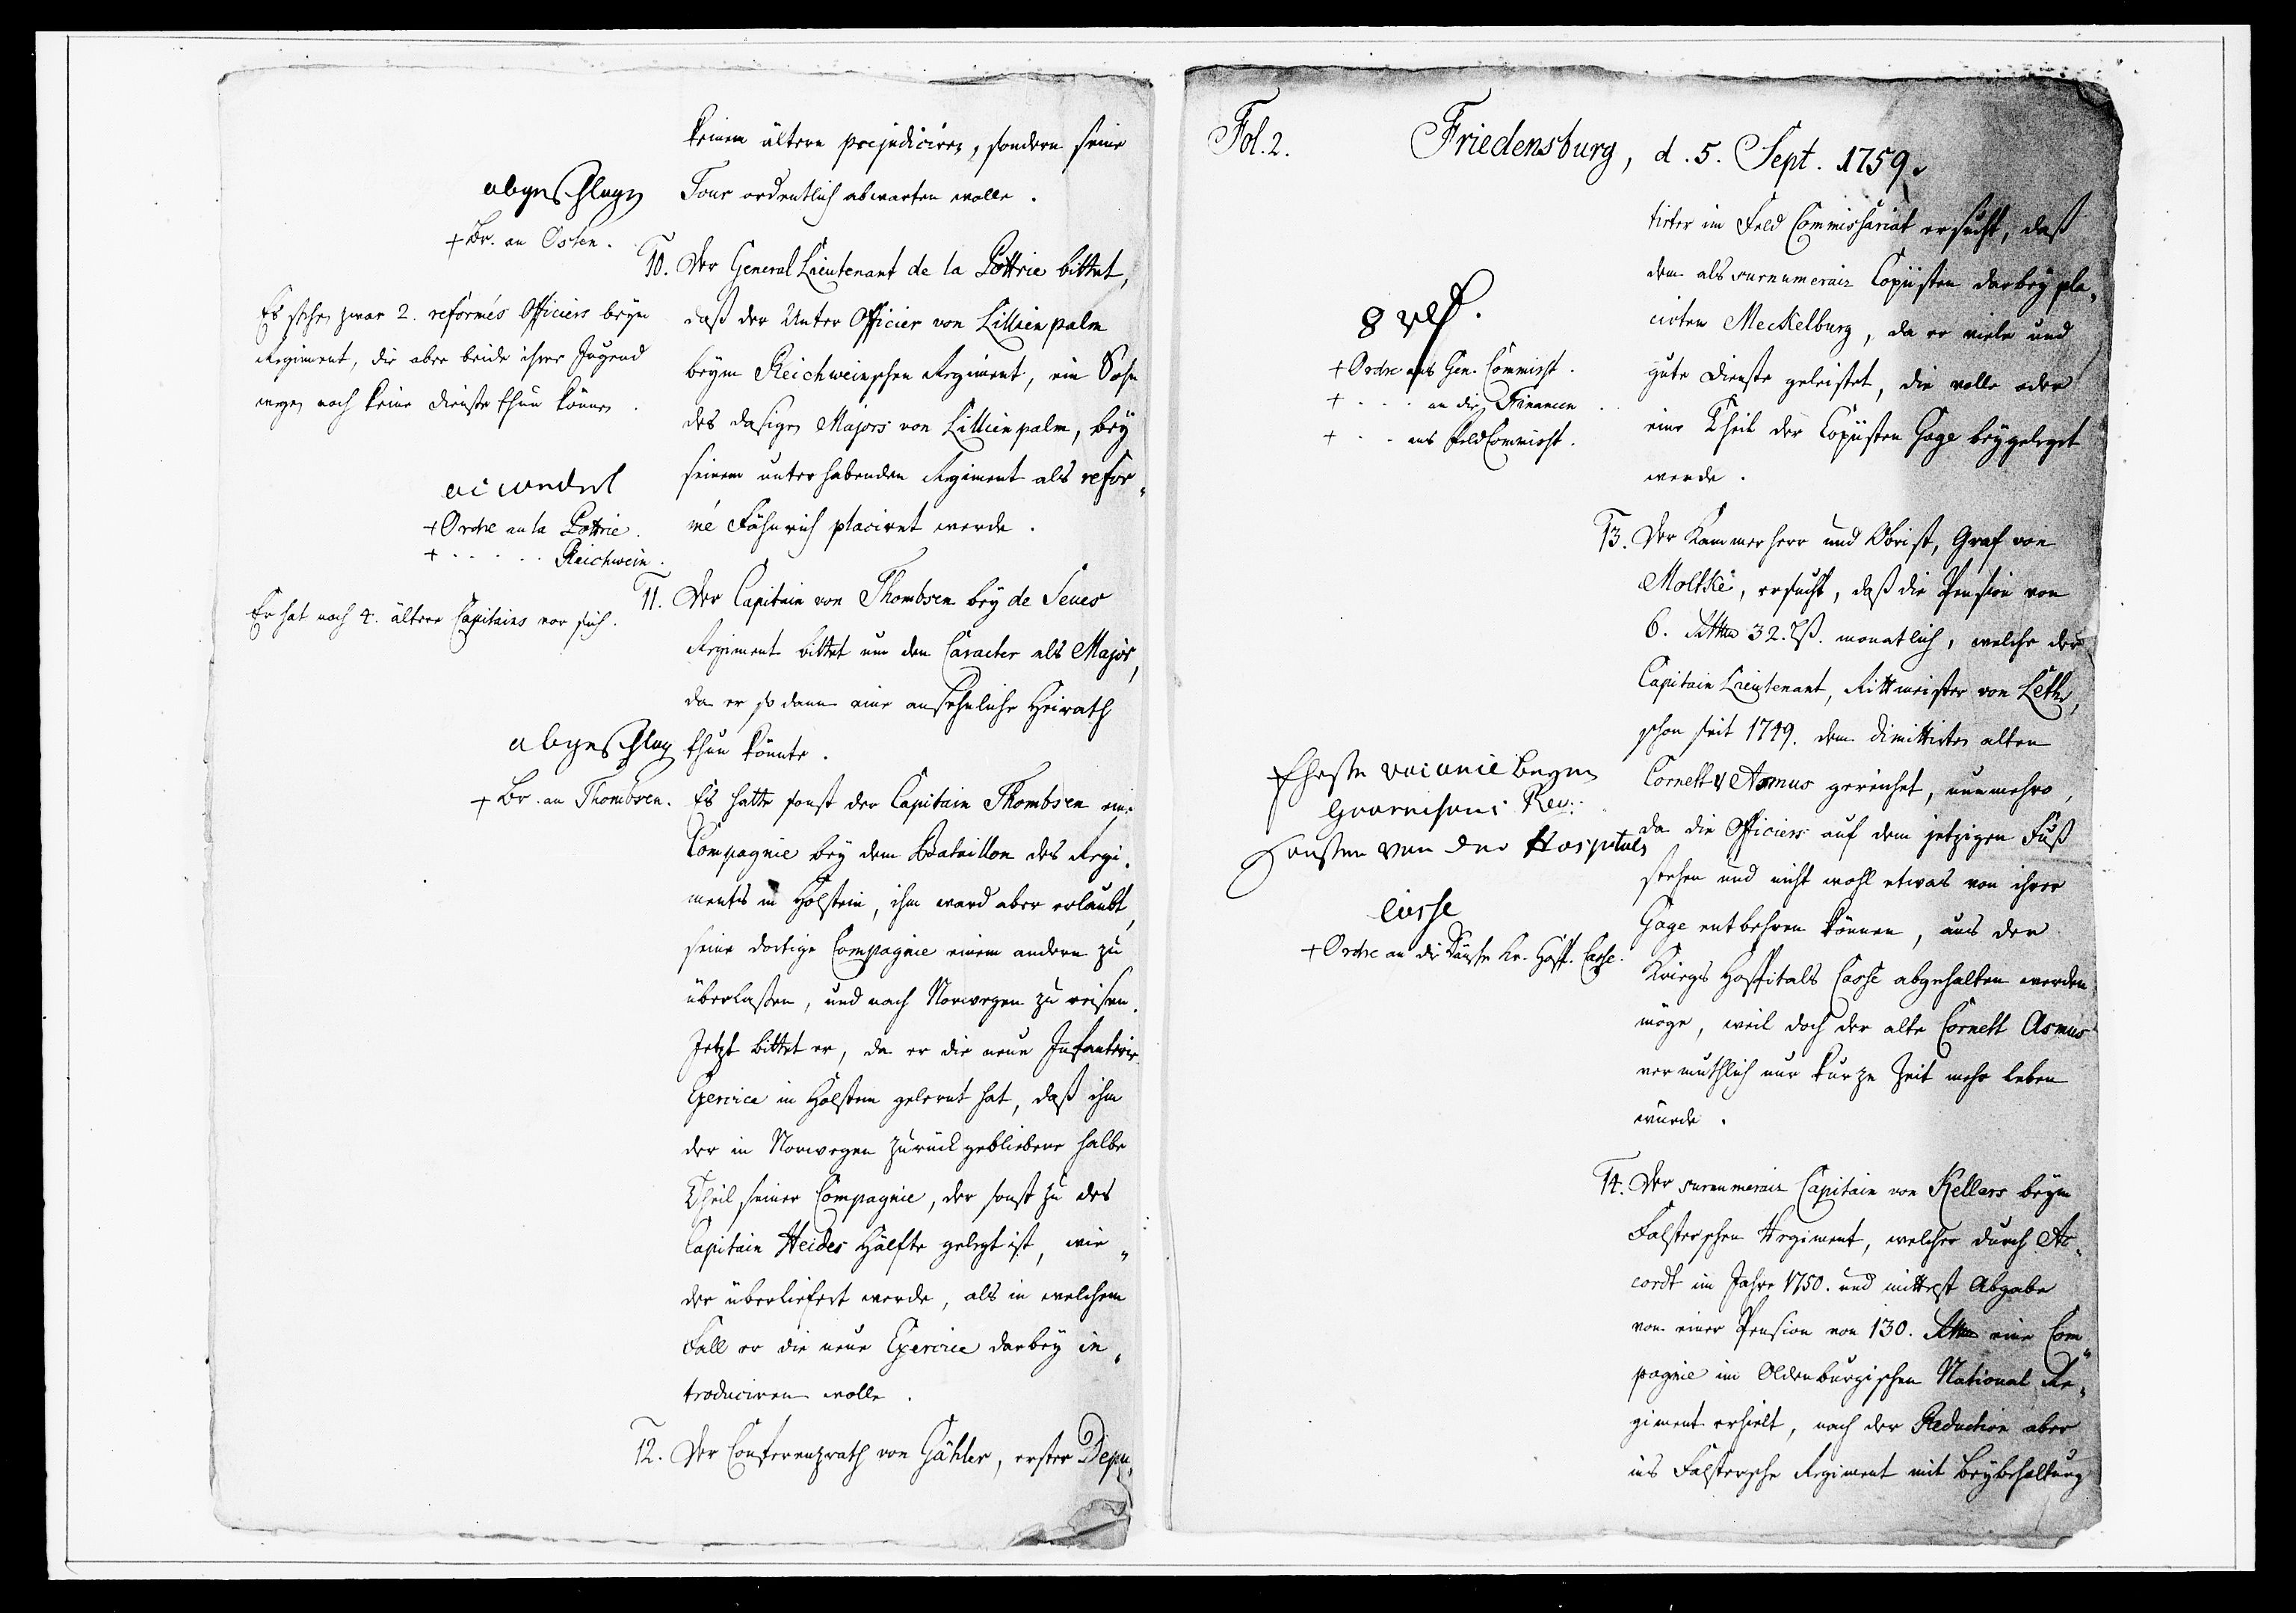 keinem ältern præjudiciren, sondern seine
Tour ordentlich abwarten wolle.
abgeschlagen
+ Br. an Osten.
10. Der General Lieutenant de la Pottrie bittet,
daß der Unter Officier von Lillienpalm
beym Reichweinschen Regiment, ein Sohn
des dasigen Majors von Lillienpalm, bey
seinem unterhabenden Regiment als refor„
mé Fähnrich placiret werde.
Es stehen zwar 2. reformés Officiers beym
Regiment, die aber beide ihrer Jugend
wegen noch keine Dienste thun können.
accordirt
+ Ordre an la Pottrie.
+ . . . . . Reichwein.
11. Der Capitain von Thombsen bey de Seues
Regiment bittet um den Caracter als Major,
da er so dann eine ansehnliche Heirath
thun könnte.
Er hat noch 4. ältere Capitains vor sich.
abgeschlag
+ Br. an Thombsen.
Es hatte sonst der Capitain Thombsen eine
Compagnie bey dem Bataillon des Regi„
ments in Holstein, ihm ward aber erlaubt,
seine dortige Compagnie einem andern zu
überlaßen, und nach Norwegen zu reisen.
Jetzt bittet er, da er die neue Infanterie
Exercice in Holstein gelernt hat, daß ihm
der in Norwegen zurückgebliebene halbe
Theil seiner Compagnie, der sonst zu des
Capitain Heides Hälfte gelegt ist, wie„
der überliefert werde, als in welchem
Fall er die neue Exercice darbey in„
troduciren wolle.
12. Der Conferenzrath von Gähler, erster Depu„
Fol. 2. Friedensburg, d. 5. Sept. 1759.
tirter im Feld Commissariat ersucht, daß
dem als surnumerair Copiisten darbey pla„
cirten Meckelburg, da er viele und
gute Dienste geleistet, die volle oder
eine Theil der Copiisten Gage beygeleget
werde.
+ Ordre ans Gen. Commisst.
+ . . . an die Financen
+ . . ans Feld Commisst.
13. Der Kammerherr und Obrist, Graf von
Moltke, ersucht, daß die Pension von
6. Rthlr 32. ß. monatlich, welche der
Capitain Lieutenant, Rittmeister von Leth,
schon seit 1749. dem dimittirten alten
Cornett v Asmus gereichet, nunmehro,
da die Officiers auf dem jetzigen Fuß
stehen und nicht wohl etwas von ihrer
Gage entbehren können, aus der
Kriegs Hospitals Casse abgehalten werden
möge, weil doch der alte Cornett Asmus
vermuthlich nur kurze Zeit mehr leben
würde.
Eheste vacance beym
Guarnisons Reg:
sonsten von der Hospitals
Casse
+ Ordre an die Kr. Hosp. Casse.
14. Der surnumerair Capitain von Kellers beym
Falsterschen Regiment, welcher durch Ac„
cordt im Jahre 1750. und mittelst Abgabe
von einer Pension von 130. Rthlr eine Com„
pagnie im Oldenburgischen National Re„
giment erhielt, nach der Reduction aber
ins Falstersche Regiment mit Beybehaltung